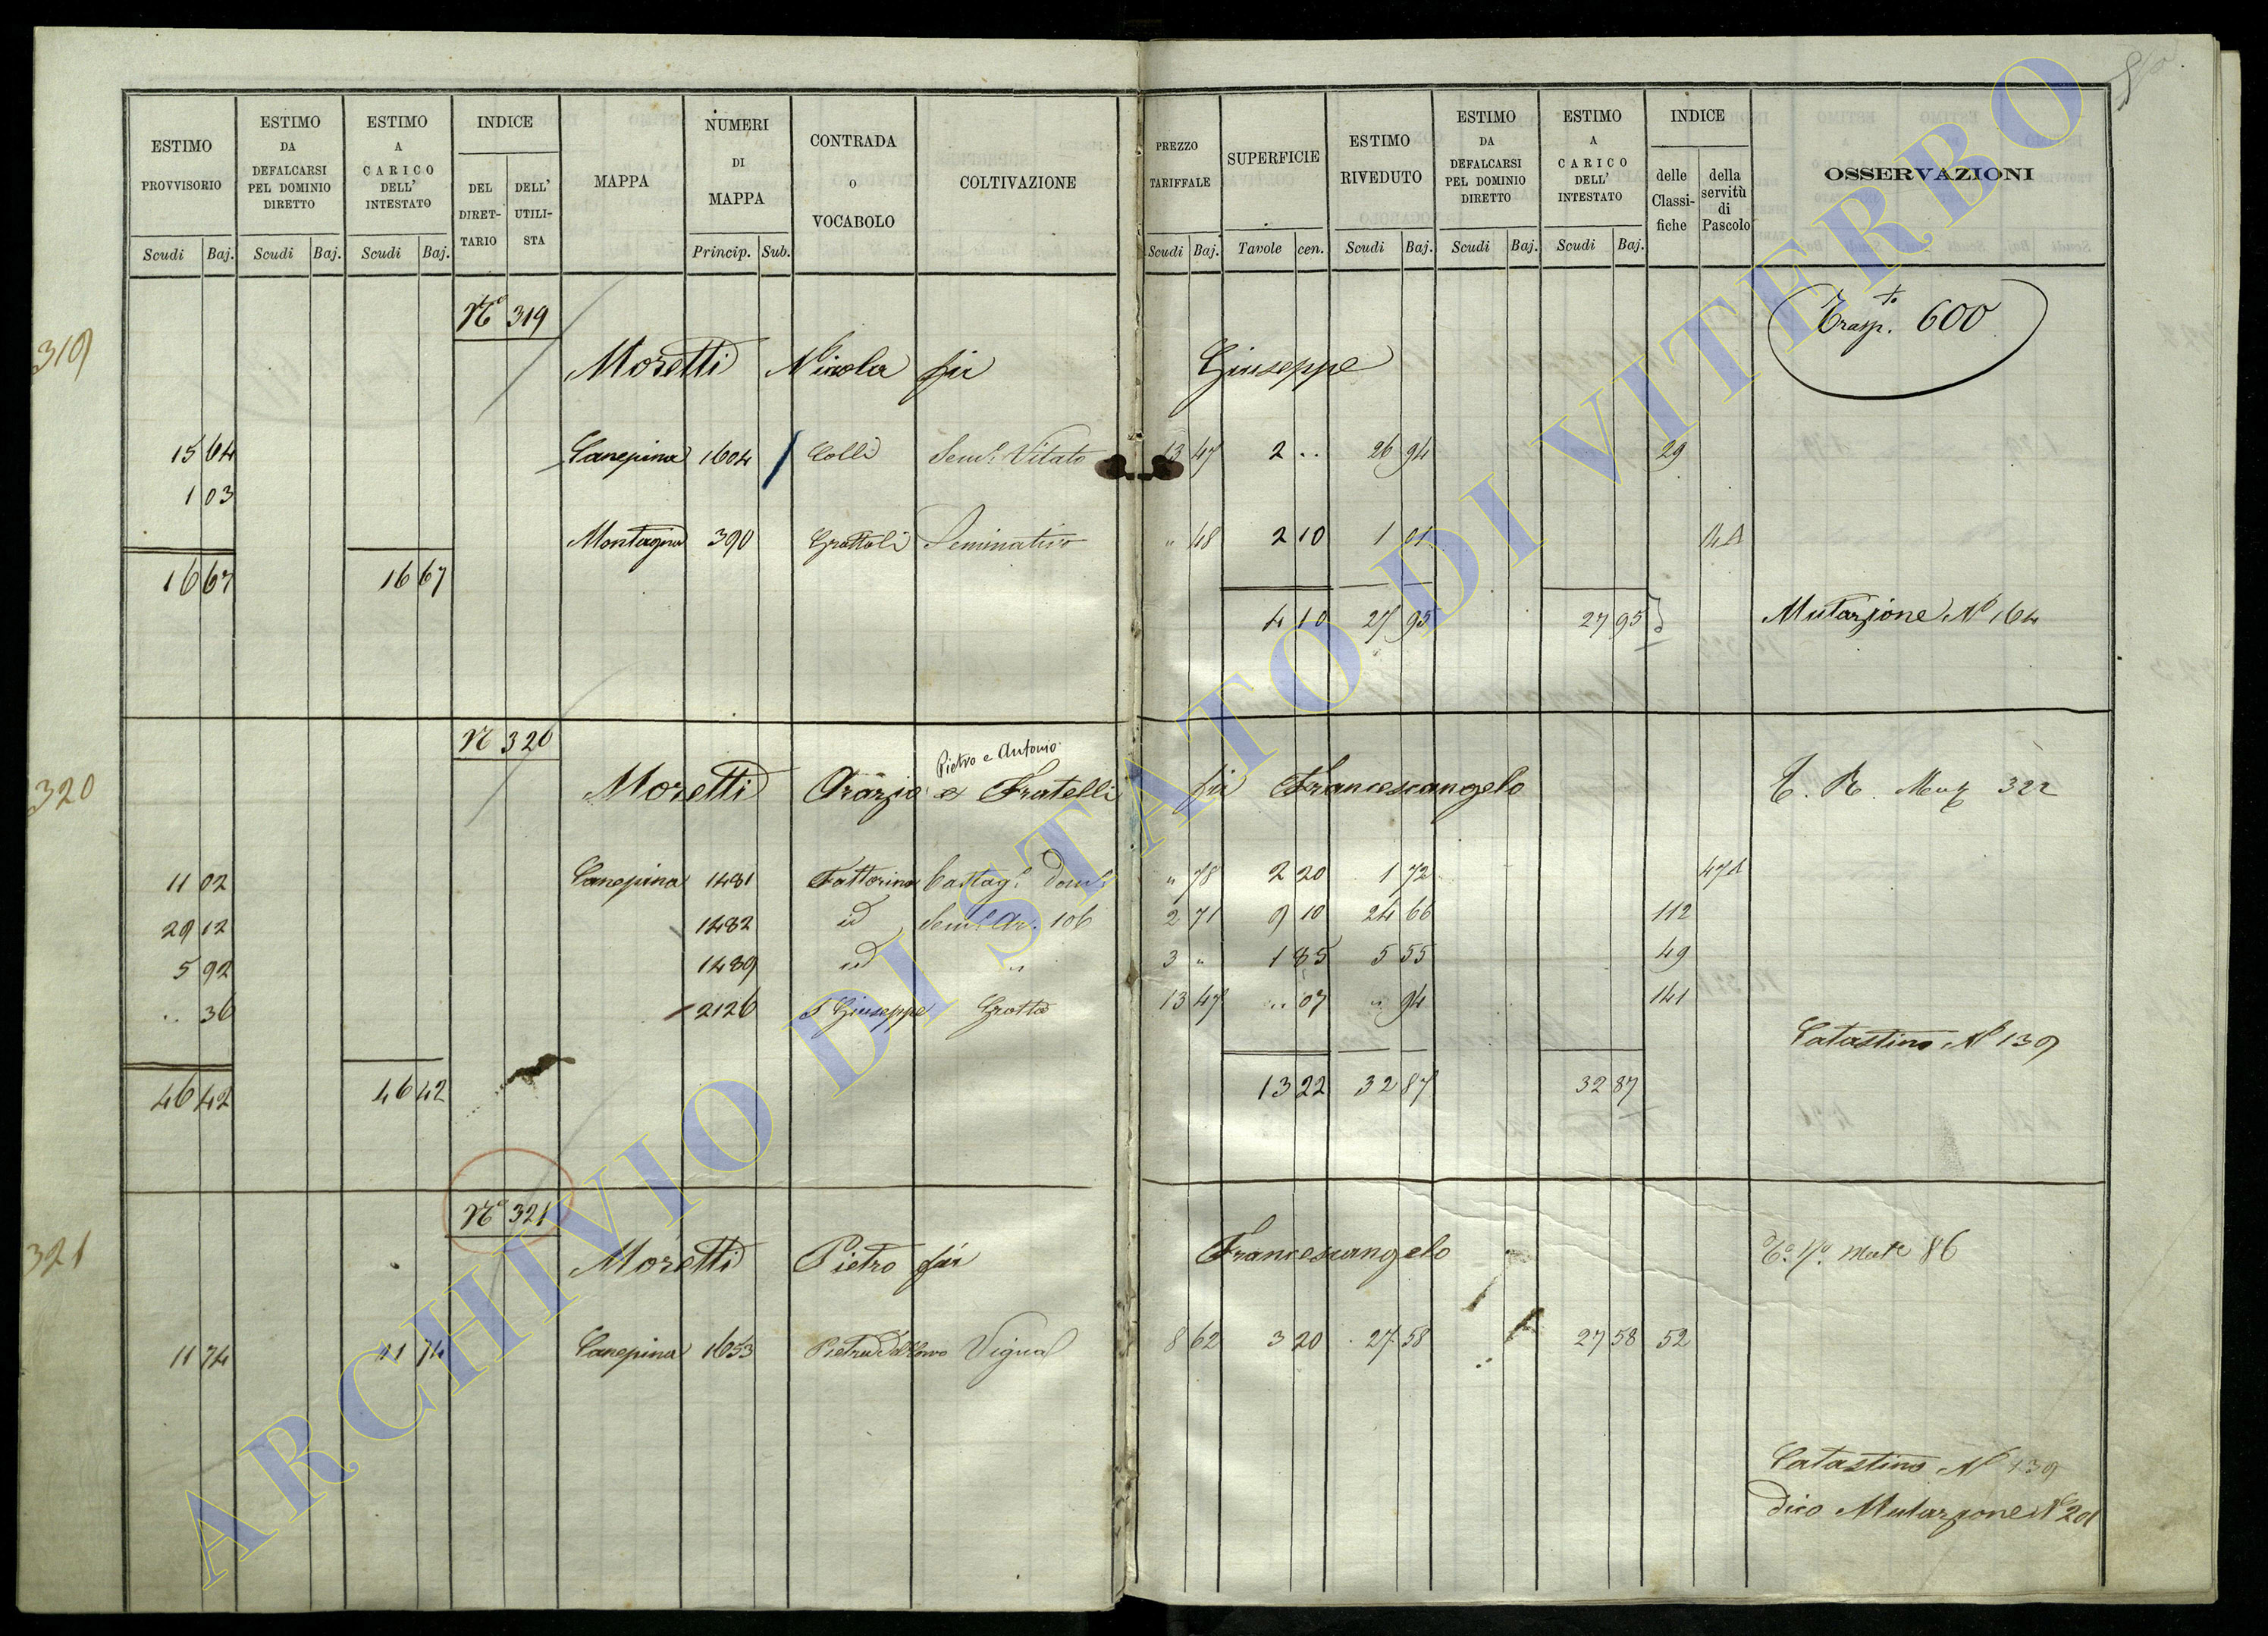 ESTIMO PROVVISORIO
ESTIMO DA DEFALCARSI PEL DOMINIO DIRETTO
ESTIMO A CARICO DELL' INTESTATO
INDICE
DEL DIRET-TARIO
DELL' UTILI-STA
MAPPA
NUMERI DI MAPPA
CONTRADA O VOCABOLO
COLTIVAZIONE
PREZZO TARIFFALE
SUPERFICIE
ESTIMO RIVEDUTO
ESTIMO DA DEFALCARSI PEL DOMINIO DIRETTO
ESTIMO A CARICO DELL' INTESTATO
INDICE
delle Classi-fiche
della servitù di Pascolo
OSSERVAZIONI
Scudi Baj. Scudi Baj. Scudi Baj. Princip. Sub. Scudi Baj. Tavole cen. Scudi Baj. Scudi Baj. Scudi Baj.
319 N° 319 Trasp.to 600
Moretti Nicola fu Giuseppe
15 64 Canepina 1604 Colli Sem.e Vitato 13 47 2 .. 26 94 29
1 03
Montagna 390 Grottoli Seminativo " 48 2 10 1 01 14A
16 67 16 67 4 10 27 95 27 95 Mutazione N° 164
N 320
Pietro e Antonio
320 Moretti Orazio e Fratelli fu Francescangelo 322
11 02 Canepina 1481 Fattorino Castag.e Dom.e " 78 2 20 1 72 47A
29 12 1482 id Sem.e Ar. 106 2 71 9 10 24 66 112
5 92 1489 id " 3 " 1 85 5 55 49
.. 36 2126 S Giuseppe Grotta 13 47 .. 07 " 94 141
Catastino N° 139
46 42 46 42 13 22 32 87 32 87
N° 321
321 Moretti Pietro fu Francescangelo 86
11 74 11 74 Canepina 1653 Vignal 8 62 3 20 27 58 27 58 52
Catastino N° 139
dico Mutazione N°
ARCHIVIO DI STATO DI VITERBO